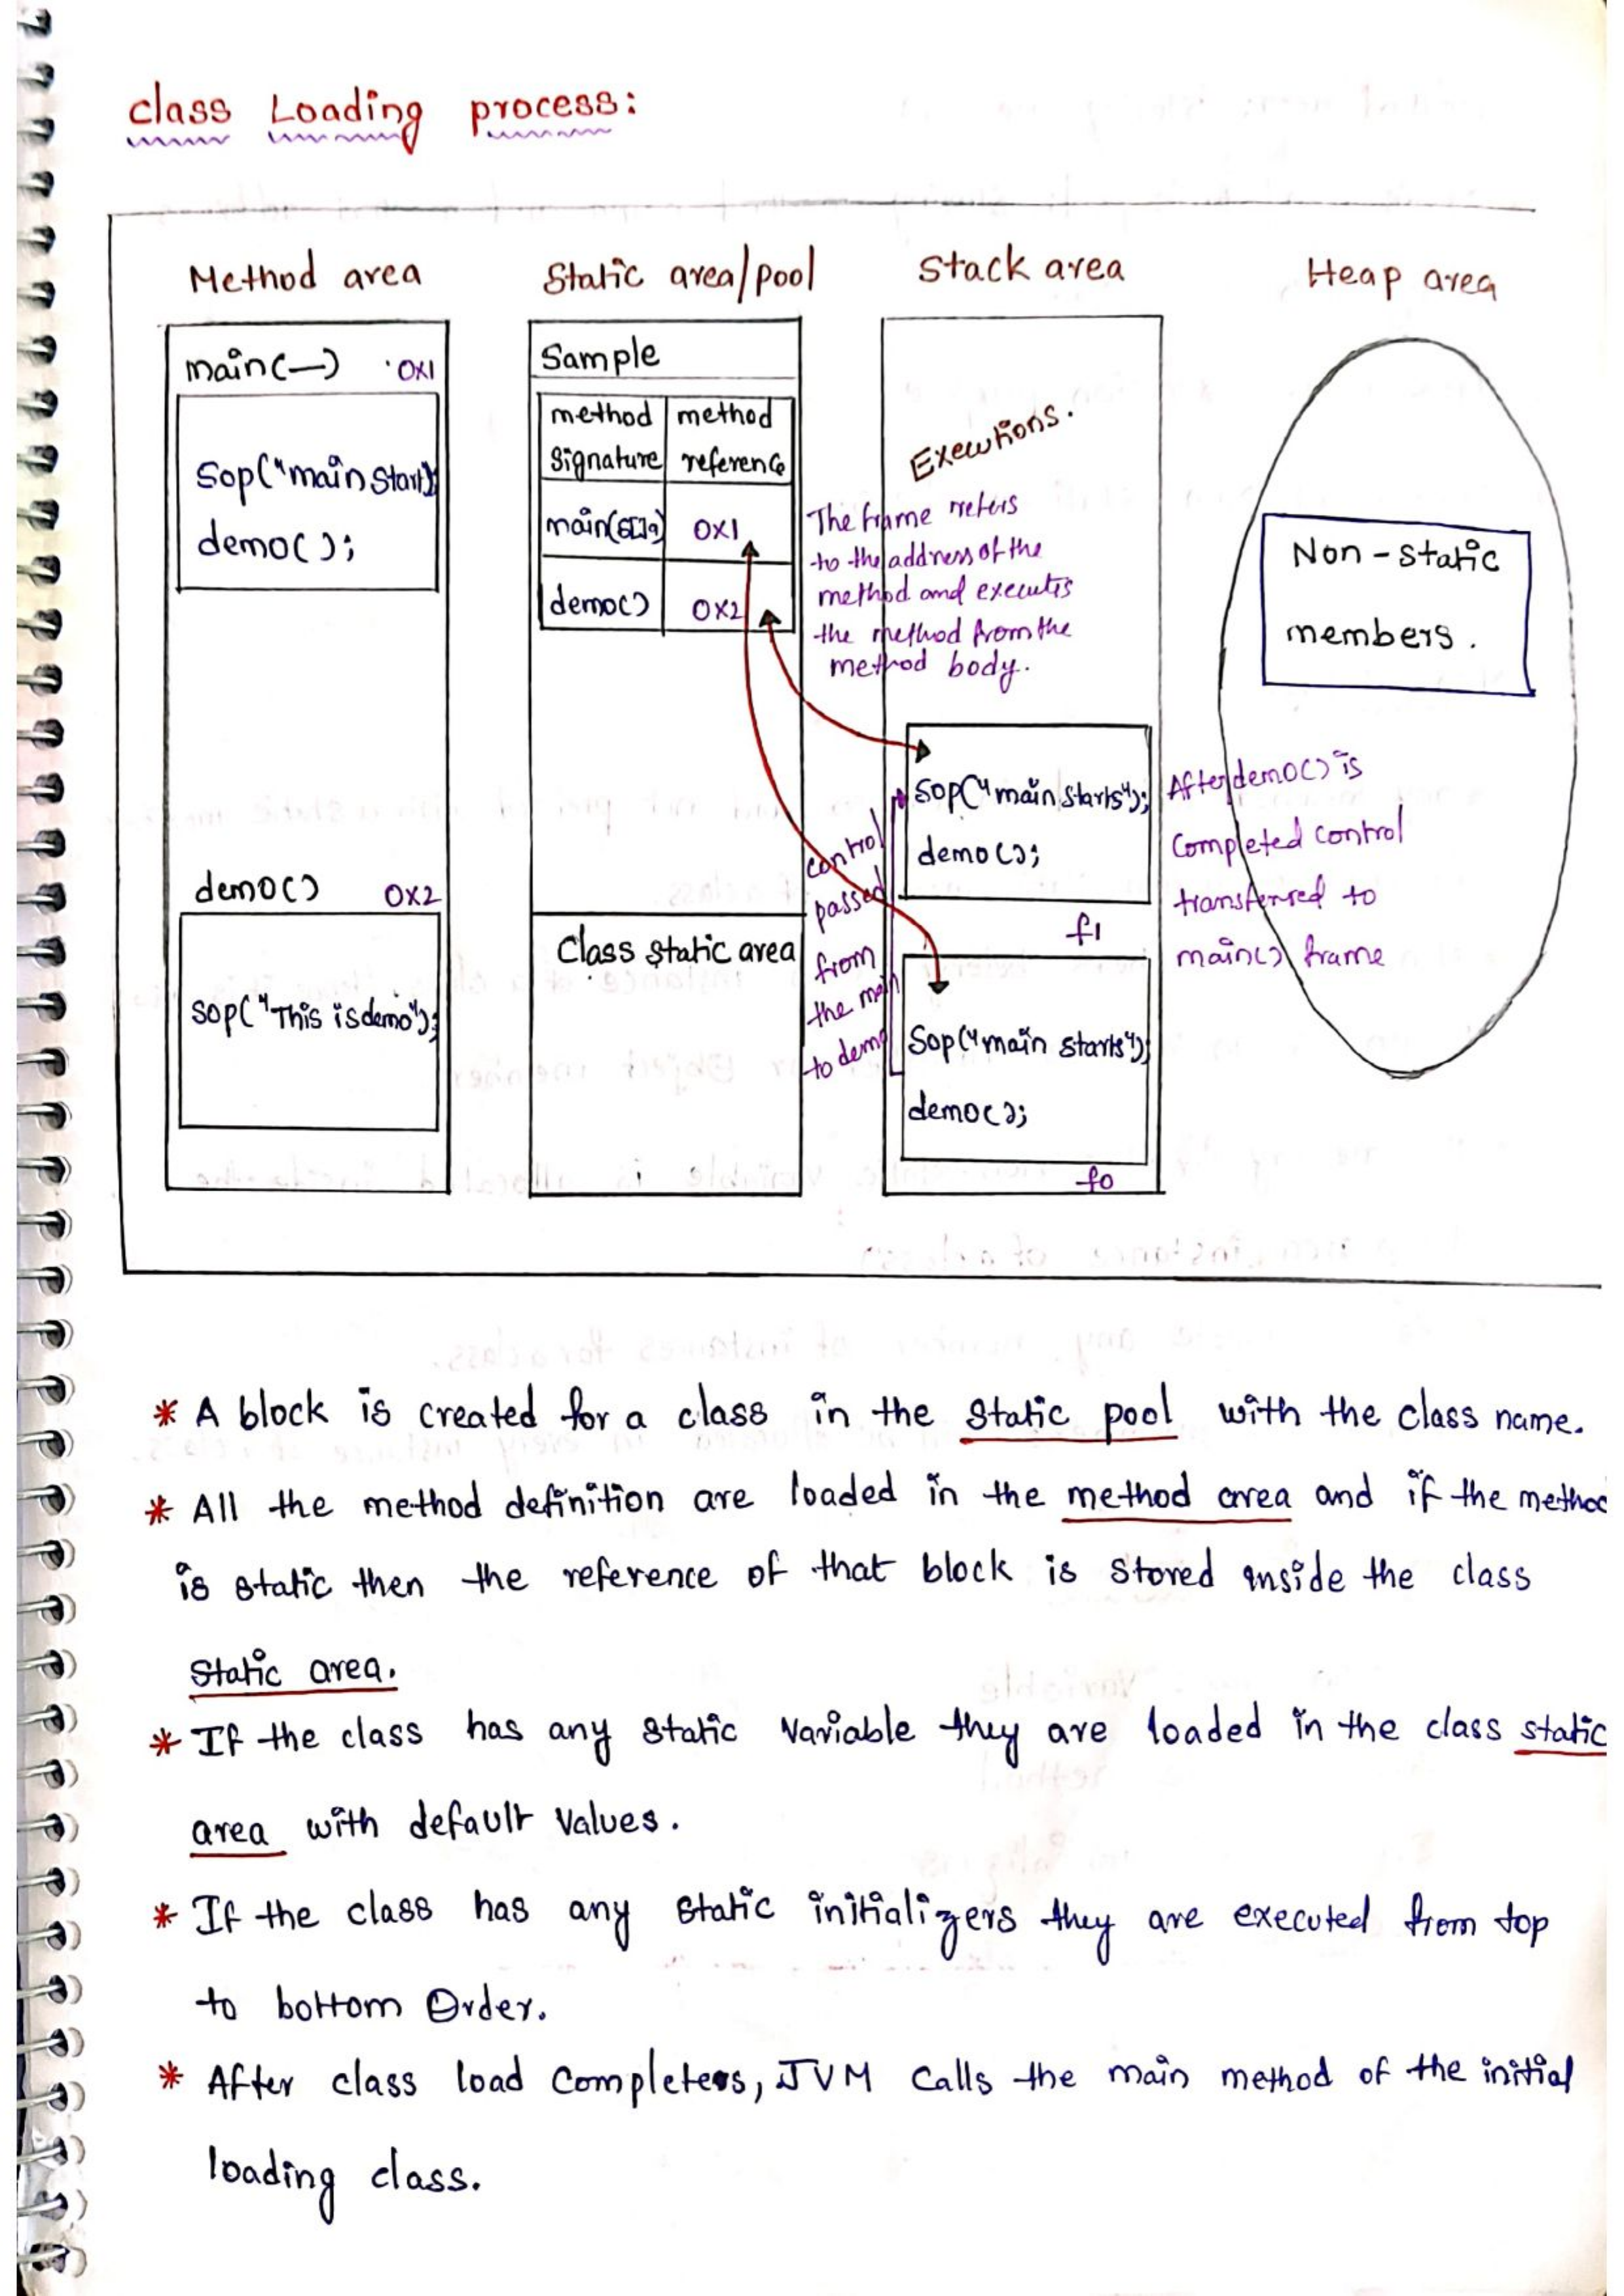 class Loading process:
Method area
Static area/pool
Stack area
Heap area
main(—) 0x1
Sop("main Start);
demo();
demo() 0x2
Sop("This is demo");
Sample
method method
Signature reference
main(S[]a) 0x1
demo() 0x2
Class Static area
Executions.
The frame refers
to the address of the
method and executes
the method from the
method body.
Sop("main starts");
demo();
f1
Sop("main starts");
demo();
f0
control
passed
from
the main
to demo
Non-static
members.
After demo() is
Completed control
transferred to
main() frame
* A block is created for a class in the static pool with the class name.
* All the method definition are loaded in the method area and if the method
is static then the reference of that block is stored inside the class
Static area.
* If the class has any static variable they are loaded in the class static
area with default values.
* If the class has any static initializers they are executed from top
to bottom Order.
* After class load completes, JVM Calls the main method of the initial
loading class.